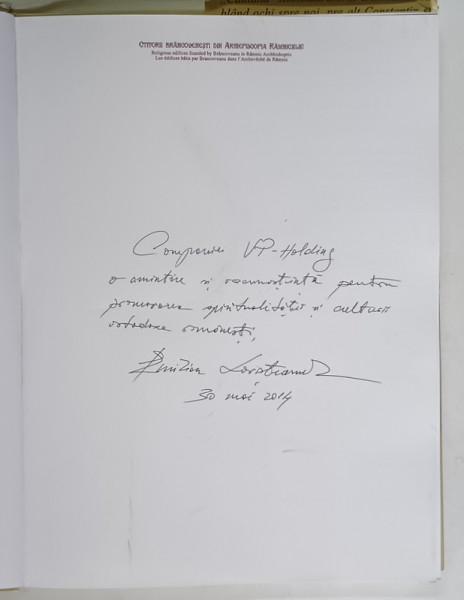 blând ochi spre noi, pre alt Constantin
CTITORII BRÂNCOVENEȘTI DIN ARHIEPISCOPIA RÂMNICULUI
Religious edifices founded by Brâncoveanu in Râmnic Archbishopric
Les édifices bâtis par Brancoveanu dans l'Archevêché de Râmnic
Companiei VP-Holding
o amintire și recunoștință pentru
promovarea spiritualității și culturii
ortodoxe românești,
30 mai 2014